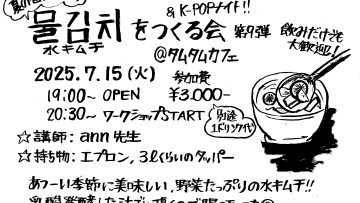 & K-POPナイト!!
물김치をつくる会 第9弾
水キムチ
飲みだけでも大歓迎!!
@タムタムカフェ
2025.7.15(火)
19:00~ OPEN
20:30~ ワークショップSTART
参加費
¥3.000-
別途
1ドリンクオーダー
☆講師:ann先生
☆持ち物:エプロン、3ℓくらいのタッパー
あつーい季節に美味しい,野菜たっぷりの水キムチ!!